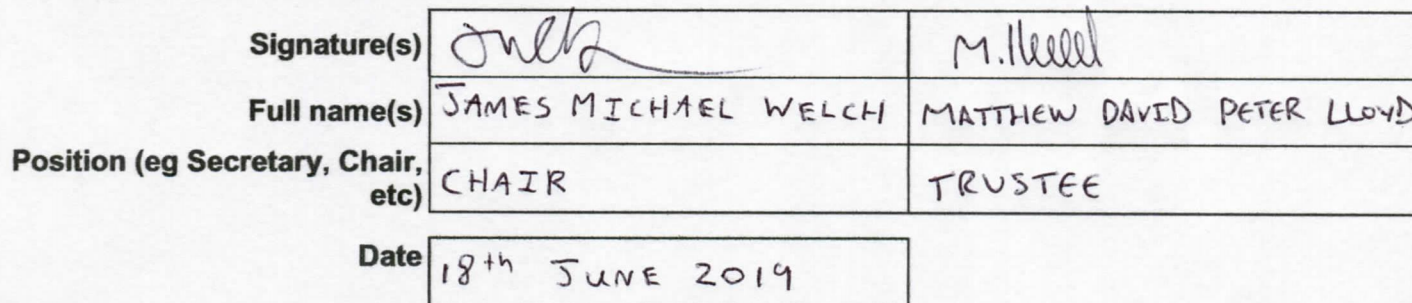 Signature(s)
Full name(s) JAMES MICHAEL WELCH MATTHEW DAVID PETER LLOYD
Position (eg Secretary, Chair,
etc) CHAIR TRUSTEE
Date 18th JUNE 2019